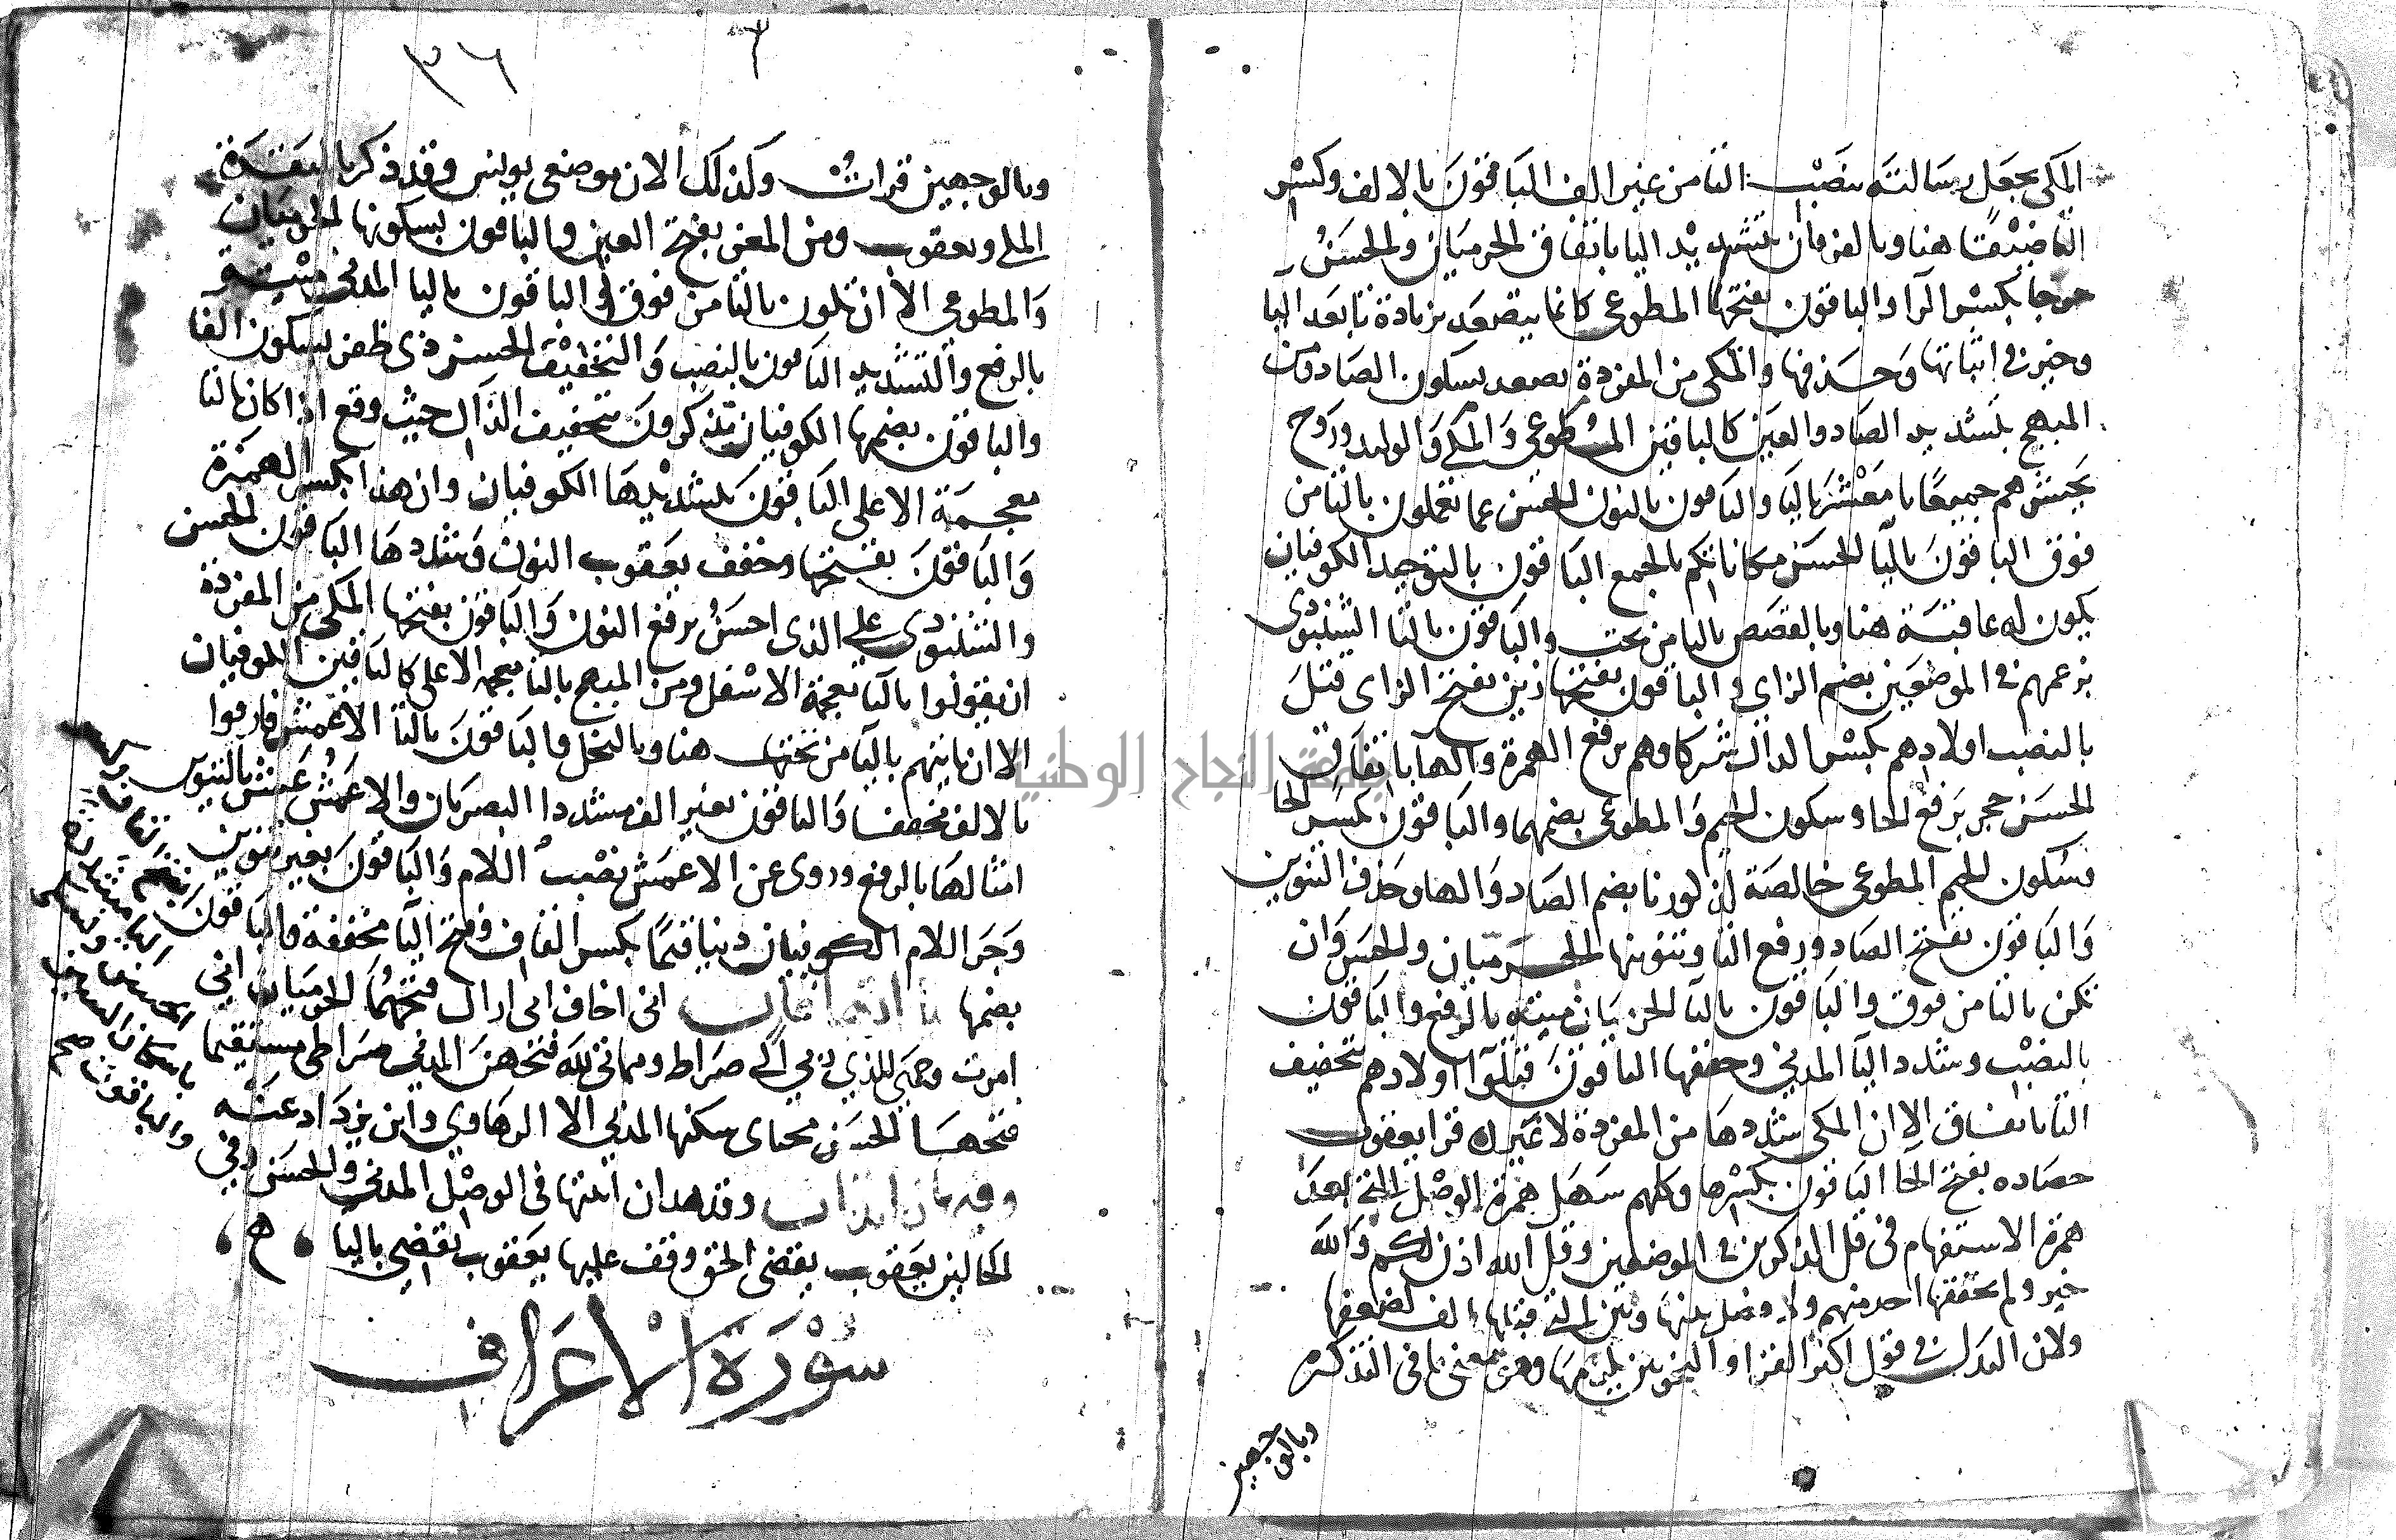 المكي يجعل رسالته بنصب التا من غير الف الباقون بالالف وكسر
التا ضيقا هنا وبالفرقان بتشديد اليا باتفاق الحرميان والحسن
حرجا بكسر الرا والباقون بفتحها المطوعي كانما يتصعد بزيادة تا بعد اليا
وخير في اثباتها وحذفها والمكي من المفردة يصعد بسكون الصاد ومن
المبهج بتشديد الصاد والعين كالباقين المطوعي والمكي والوليد وروح
يحشرهم جميعا يا معشر باليا والباقون بالنون الحسن عما تعملون بالتا من
فوق الباقون باليا الحسن مكاناتكم بالجمع الباقون بالتوحيد الكوفيان
يكون له عاقبة هنا وبالقصص باليا من تحت والباقون بالتا الشنبوذي
بزعمهم في الموضعين بضم الزاي والباقون بفتحها زين بفتح الزاي قتل
بالنصب اولادهم بكسر الدال شركاوهم برفع الهمزة والها باتفاق
الحسن حجر برفع الحا وسكون الجيم والمطوعي بضمهما والباقون بكسر الحا
وسكون الجيم المطوعي خالصة لذكورنا بضم الصاد والها وحذف التنوين
والباقون بفتح الصاد ورفع التا وتنوينها الحرميان والحسن وان
تكن بالتا من فوق والباقون باليا الحرميان ميتة بالرفع والباقون
بالنصب وشدد اليا المدني وخففها الباقون قتلوا اولادهم بتخفيف
التا باتفاق الا ان المكي شددها من المفردة لا غير قرا يعقوب
حصاده بفتح الحا الباقون بكسرها وكلهم سهل همزة الوصل التي بعد
همزة الاستفهام في قل الذكرين في الموضعين وقل آلله اذن لكم وآلله
خير ولم يحققها احد منهم ولا فصل بينها وبين التي قبلها بالف لضعفها
ولان البدل في قول اكثر القرا والنحويين يلزمها وهو معنى ما في التذكرة
وبالوجهين
٣٦
وبالوجهين قرات وكذلك الان موضعي يونس وقد ذكر بالبقرة
المكي ويعقوب ومن المعز بفتح العين والباقون بسكونها الحرميان
والمطوعي الا ان تكون بالتا من فوق الباقون باليا المدني ميتة
بالرفع والتشديد الباقون بالنصب والتخفيف الحسن ذي ظفر بسكون الفا
والباقون بضمها الكوفيان تذكرون بتخفيف الذال حيث وقع اذا كان بالتا
معجمة الاعلى الباقون بتشديدها الكوفيان وان هذا بكسر الهمزة
والباقون بفتحها وخفف يعقوب النون وشددها الباقون الحسن
والشنبوذي على الذي احسن برفع النون والباقون بفتحها المكي من المفردة
ان يقولوا باليا معجمة الاسفل ومن المبهج بالتا معجمة الاعلى كالباقين الكوفيان
الا ان ياتيهم باليا من تحتها هنا وبالنحل والباقون بالتا الاعمش فارقوا
بالالف مخففا والباقون بغير الف مشددا البصريان والاعمش عشر بالتنوين
امثالها بالرفع وروى عن الاعمش نصب اللام والباقون بغير تنوين
وجر اللام الكوفيان دينا قيما بكسر القاف وفتح اليا مخففة والباقون
بضمها اني اخاف اني اراك فتحهما الحرميان اني
امرت وجهي للذي ربي الى صراط ومماتي لله فتحهن المدني صراطي مستقيما
فتحها الحسن محياي سكنها المدني الا الرهاوي وابن يزداد عنه
وقد هدان اثبتها في الوصل المدني والحسن وفي
الحالين يعقوب يقضي الحق وقف عليها يعقوب يقضي باليا
سورة الاعراف
جامعة النجاح الوطنية